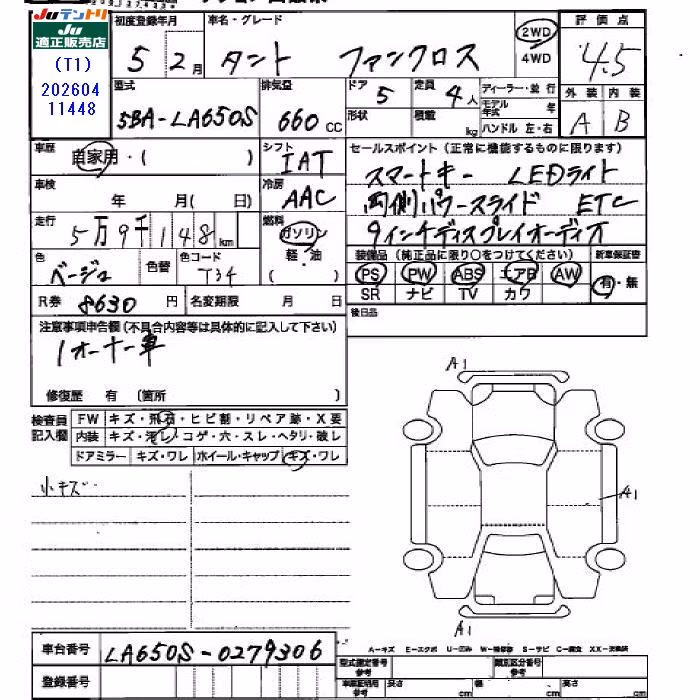 Juテントリ
Ju
適正販売店
(T1)
202604
11448
初度登録年月
5 2月
車名・グレード
タント ファンクロス
2WD
4WD
評価点
4.5
外装 内装
A B
型式
5BA-LA650S
排気量
660 cc
ドア
5
形状
定員
4人
積載
kg
ディーラー・並行
モデル年式 年
ハンドル 左・右
車歴
自家用・( )
シフト
IAT
車検
年 月( 日)
冷房
AAC
走行
5万9千148km
燃料
ガソリン
軽・油
( )
色
ベージュ
色替
色コード
T34
R券 8630 円
名変期限 月 日
セールスポイント(正常に機能するものに限ります)
スマートキー LEDライト
両側パワースライド ETC
9インチディスプレイオーディオ
装備品(純正品に限り○をつけてください)
PS PW ABS エアB AW
SR ナビ TV カワ
新車保証書
有・無
後日品
注意事項申告欄(不具合内容等は具体的に記入して下さい)
1オーナー車
修復歴 有 (箇所 )
検査員
記入欄
FW キズ・飛石・ヒビ割・リペア跡・X要
内装 キズ・汚レ・コゲ・穴・スレ・ヘタリ・破レ
ドアミラー キズ・ワレ ホイール・キャップ キズ・ワレ
小キズ
A1
A1
A1
車台番号 LA650S-0279306
登録番号
A-キズ E-エクボ U-凹み W-補修跡 S-サビ C-腐食 XX-交換済
型式指定番号
参考
類別区分番号
参考
車庫証明用
参考
長さ cm
幅 cm
高さ cm